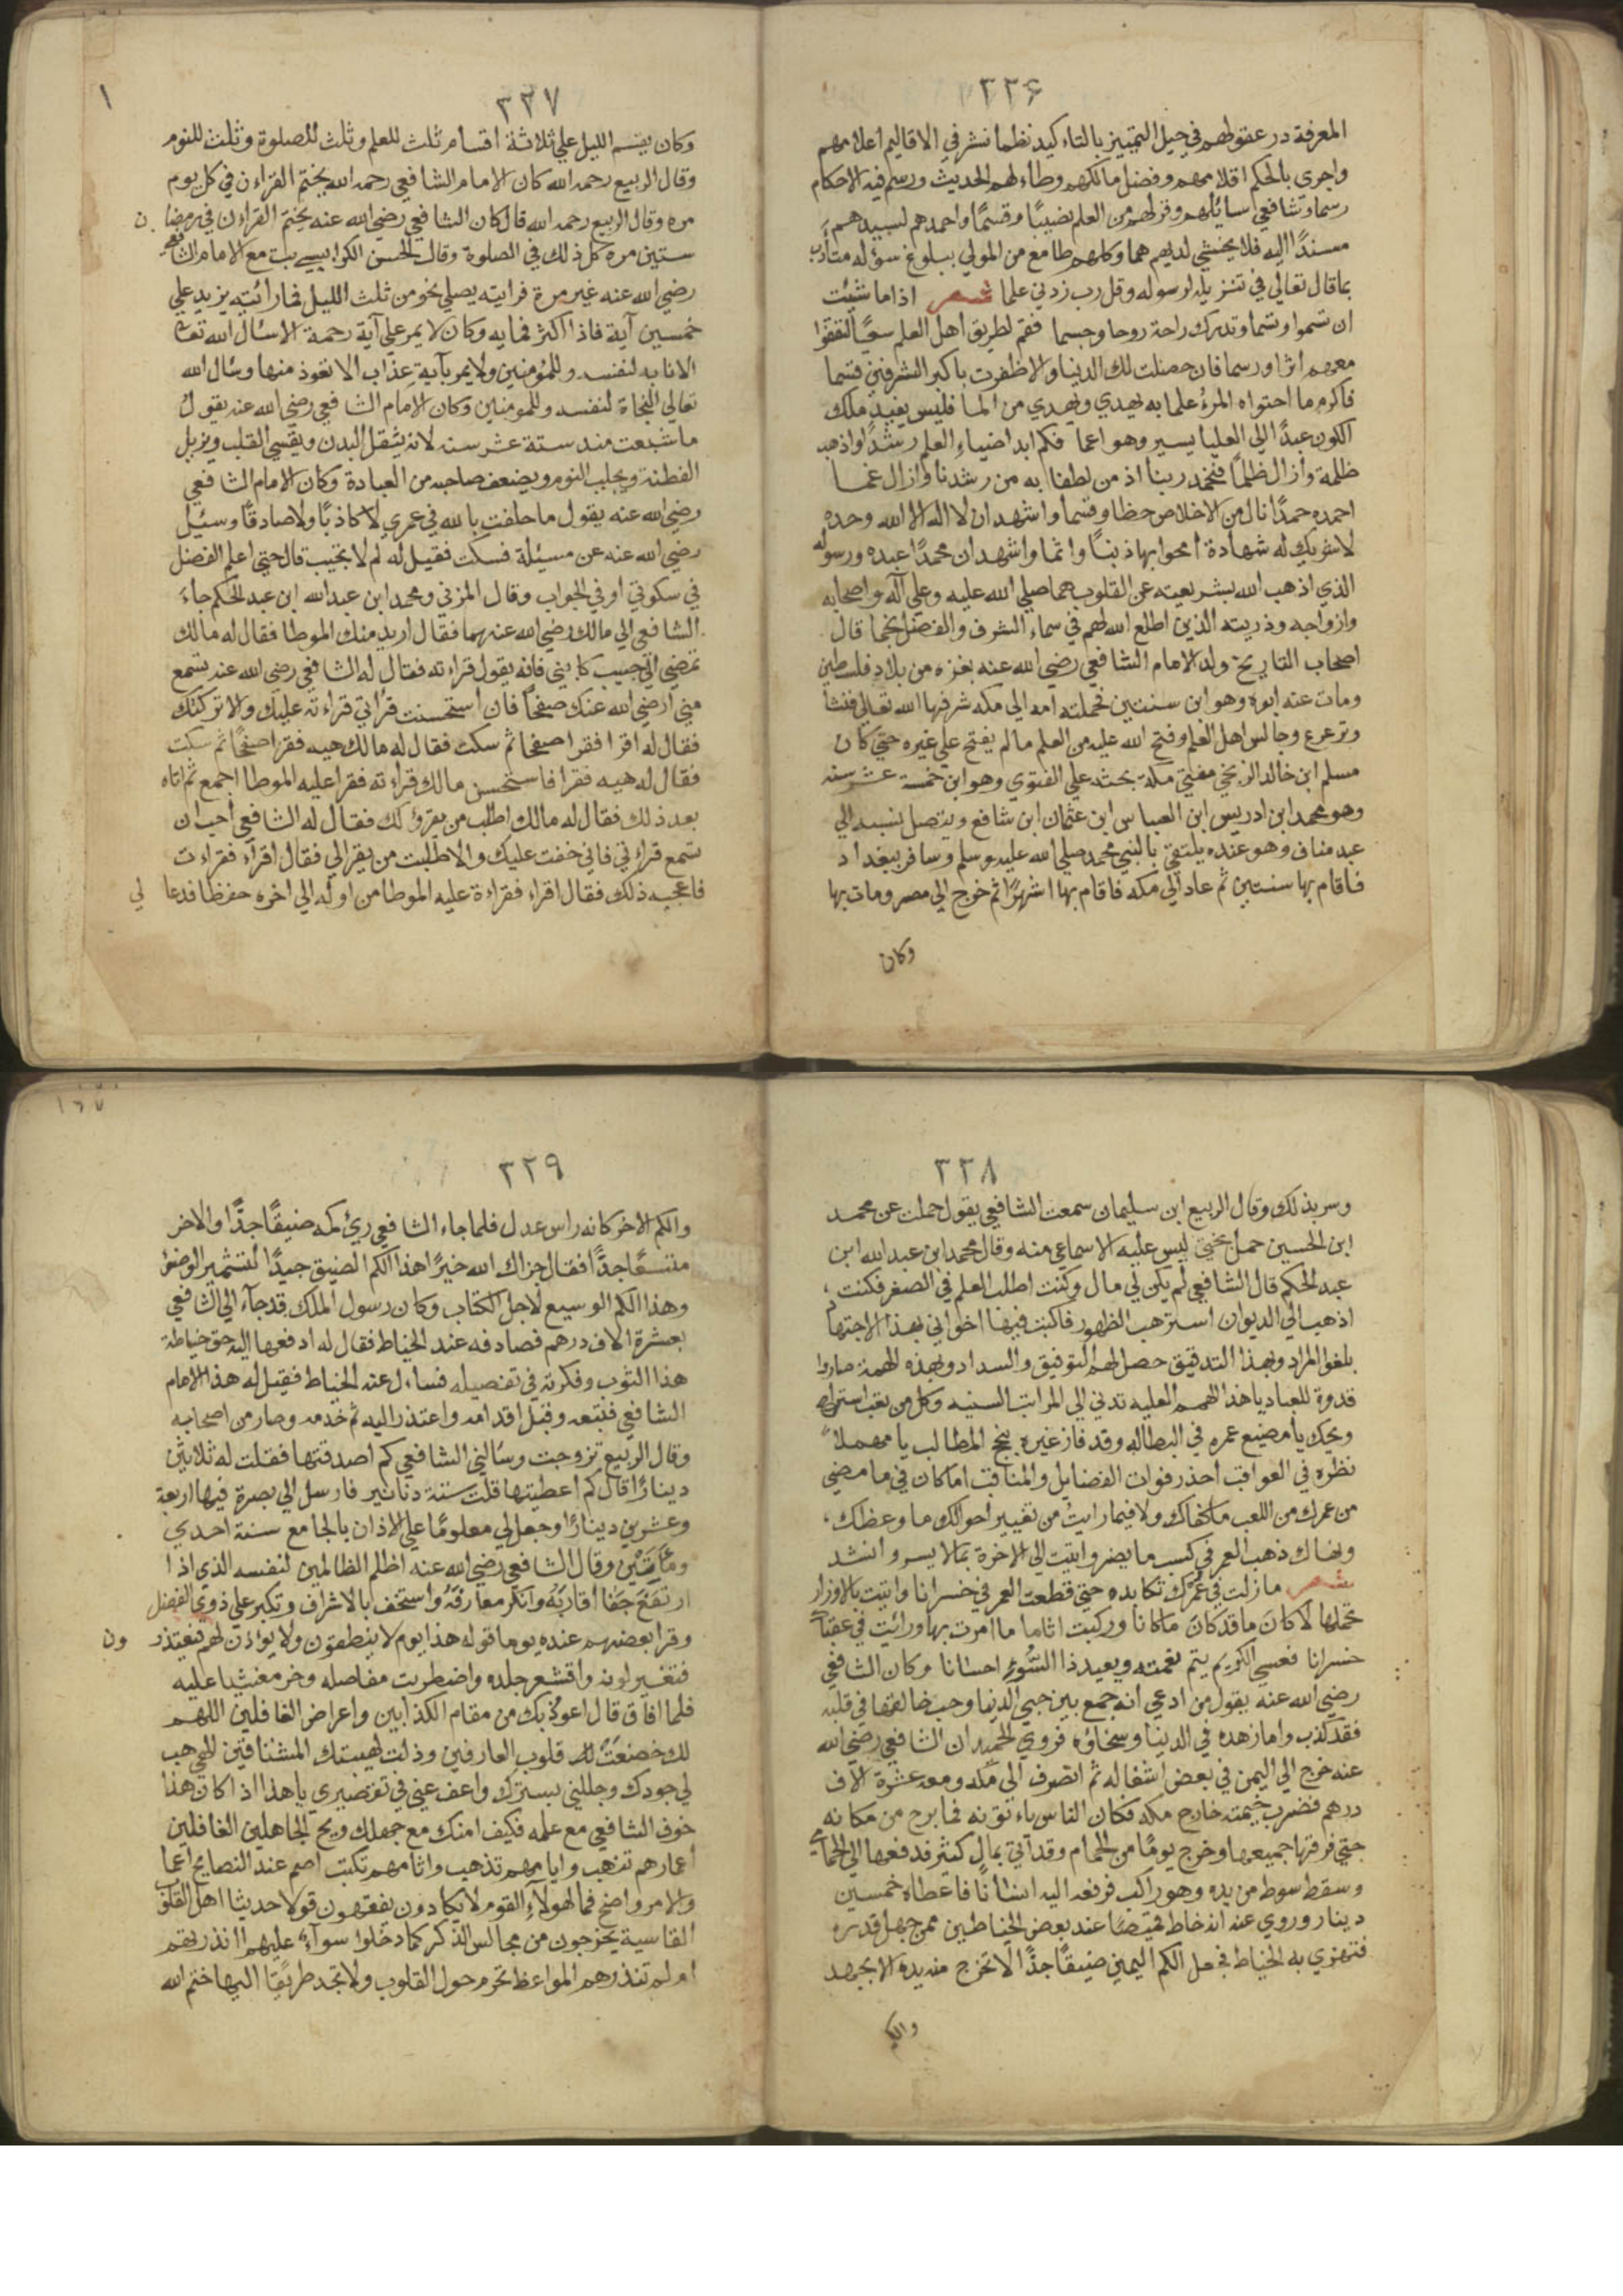 ٣٢٦
المعرفة در عقولهم في جيل التمييز بالتاكيد نظما نشر في الاقاليم اعلامهم
واجرى بالحكم اقلامهم وفضل مالكهم وطاء لهم الحديث ورسم فيه الاحكام
رسما وشافعي اسائلهم وفر لهم من العلم نصيبًا وقسمًا واحمدهم لسيدهم
مسندًا اليه فلا يخشي لديهم هما وكلهم طامع من المولي ببلوغ سؤله متأدب
بما قال تعالي في تنزيله لرسوله وقل رب زدني علما شعر اذا ما شئت
ان تسموا وتنما وتدرك راحة روحا وجسما فقم لطريق اهل العلم سعيًا لتقفوا
معهم اثرا ورسما فان حصلت لك الدنيا والا ظفرت باكبر الشرفين قسما
فاكرم ما احتواه المرء علما به يهدي ويهدي من الما فليس يفيد ملك
الكون عبدًا الي العليا يسير وهو اعما فكم ابدا ضياء العلم رشدًا واذهب
ظلمة وازال ظلمًا فنحمد ربنا اذ من لطفا به من رشدنا وازال غما
احمده حمدًا نال من الاخلاص حظا وقسما واشهد ان لا اله الا الله وحده
لا شريك له شهادة امحوا بها ذنبًا واثما واشهد ان محمدًا عبده ورسوله
الذي اذهب الله بشريعته عن القلوب هما صلي الله عليه وعلي آله واصحابه
وازواجه وذريته الذين اطلع الله لهم في سماء الشرف والفضل نجما قال
اصحاب التاريخ ولد الامام الشافعي رضي الله عنه بغزه من بلاد فلسطين
ومات عنه ابوه وهو ابن سنتين فحملته امه الي مكه شرفها الله تعالي فنشا
وترعرع وجالس اهل العلم وفتح الله عليه من العلم ما لم يفتح علي غيره حتي كان
مسلم ابن خالد الزنجي مفتي مكة يحثه علي الفتوي وهو ابن خمسة عشر سنه
وهو محمد ابن ادريس ابن العباس ابن عثمان ابن شافع ويتصل نسبه الي
عبد مناف وهو عنده يلتقي بالنبي محمد صلي الله عليه وسلم وسافر ببغداد
فاقام بها سنتين ثم عاد الي مكه فاقام بها اشهرًا ثم خرج الي مصر ومات بها
وكان
٣٢٧
وكان يقسم الليل علي ثلاثة اقسام ثلث للعلم وثلث للصلوة وثلث للنوم
وقال الربيع رحمه الله كان الامام الشافعي رحمه الله يختم القراءن في كل يوم
مره وقال الربيع رحمه الله قال كان الشافعي رضي الله عنه يختم القراءن في رمضان
ستين مره كل ذلك في الصلوة وقال الحسن الكرابيسي بت مع الامام الشافعي
رضي الله عنه غير مرة فرايته يصلي نحو من ثلث الليل فما رائيته يزيد علي
خمسين آية فاذا اكثر فمايه وكان لا يمر علي آية رحمة الا سئال الله تعالي
الانابه لنفسه وللمؤمنين ولا يمر بآية عذاب الا تعوذ منها وسئال الله
تعالي النجاة لنفسه وللمومنين وكان الامام الشافعي رضي الله عنه يقول
ما شبعت منذ ستة عشر سنه لانه يثقل البدن ويقسي القلب ويزيل
الفطنة ويجلب النوم ويضعف صاحبه من العبادة وكان الامام الشافعي
رضي الله عنه يقول ما حلفت بالله في عمري لا كاذبًا ولا صادقًا وسئيل
رضي الله عنه عن مسئيلة فسكت فقيل له لم لا تجيب قال حتي اعلم الفضل
في سكوتي او في الجواب وقال المزني ومحمد ابن عبد الله ابن عبد الحكم جاء
الشافعي الي مالك رضي الله عنهما فقال اريد منك الموطا فقال له مالك
تمضي الي حبيب كاتبي فانه يقول قراءته فقال له الشافعي رضي الله عنه تسمع
مني رضي الله عنك صفحًا فان استحسنت قراتي قراءته عليك والا تركتك
فقال له اقرا فقرا صفحا ثم سكت فقال له مالك هيه فقرا صفحًا ثم سكت
فقال له هيه فقرا فاستحسن مالك قراءته فقرا عليه الموطا اجمع ثم اتاه
بعد ذلك فقال له مالك اطلب من يقرؤ لك فقال له الشافعي أحب ان
تسمع قراءتي فاني خفت عليك والا طلبت من يقرالي فقال اقراء فقراءت
فاعجبه ذلك فقال اقراء فقراءة عليه الموطا من اوله الي اخره حفظا فدعا لي
٣٢٨
وسر بذلك وقال الربيع ابن سليمان سمعت الشافعي يقول حملت عن محمد
ابن الحسين حمل بختي ليس عليه الا سماعي منه وقال محمد ابن عبد الله ابن
عبد الحكم قال الشافعي لم يكن لي مال وكنت اطلب العلم في الصغر فكنت
اذهب الي الديوان استرهب الظهور فاكتب فيها اخواني بهذا الاجتهاد
بلغوا المراد وبهذا التدقيق حصل لهم التوفيق والسداد وبهذه الهمة صاروا
قدوة للعباد يا هذا الهمم العليه تدني الي المراتب السنيه وكل من تعب استراح
ويحك يا من ضيع عمره في البطاله وقد فاز غيره بنجح المطالب يا مهملاً
نظره في العواقب احذر فوات الفضايل والمناقب اما كان في ما مضي
من عمرك من اللعب ما كفاك ولا فيما رايت من تغيير أحوالك ما وعظك
ونهاك ذهب العمر في كسب ما يضر واتيت الي الاخرة بما لا يسر وانشد
شعر ما زلت في عمرك تكابده حتي قطعت العمر في خسرانا واتيت بالاوزار
تحملها لا كان ما قد كان ماكانا وركبت اثاما ما امرت بها ورائيت في عقباك
خسرانا فعسي الكريم يتم نعمته ويعيد ذا السُوء احسانا وكان الشافعي
رضي الله عنه يقول من ادعي انه جمع بين حب الدنيا وحب خالقها في قلبه
فقد كذب واما زهده في الدنيا وسخاؤه فروي الحميد ان الشافعي رضي الله
عنه خرج الي اليمن في بعض اشغاله ثم انصرف الي مكه ومعه عشرة الآف
درهم فضرب خيمته خارج مكه فكان الناس ياءتونه فما برح من مكانه
حتي فرقها جميعها وخرج يومًا من الحمام وقد اتي بمال كثير فدفعه الي الحمامي
وسقط سوط من يده وهو راكب فرفعه اليه انسانًا فاعطاه خمسين
دينار وروي عنه انه خاط قميصًا عند بعض الخياطين ممن جهل قدره
فتهزي به الخياط فجعل الكم اليمين ضيقًا جدًا لا تخرج منه يده الا بجهد
والكم
٣٢٩
والكم الاخر كانه راس عدل فلما جاء الشافعي رئ كمه ضيقًا جدًا والاخر
متسعًا جدًا فقال جزاك الله خيرًا هذا الكم الضيق جيدًا لتشمير الوضوء
وهذا الكم الوسيع لاجل الكتاب وكان رسول الملك قد جاء الي الشافعي
بعشرة الاف درهم فصادفه عند الخياط فقال له ادفعها اليه حق خياطة
هذا الثوب وفكرته في تفصيله فساءل عنه الخياط فقيل له هذا الامام
الشافعي فتبعه وقبل اقدامه واعتذر اليه ثم خدمه وصار من اصحابه
وقال الربيع تزوجت وسالني الشافعي كم اصدقتها فقلت له ثلاثين
دينارًا قال كم اعطيتها قلت ستة دنانير فارسل الي بصرة فيها اربعة
وعشرين دينارًا وجعل لي معلومًا علي الاذان بالجامع سنة احدي
ومائتين وقال الشافعي رضي الله عنه اظلم الظالمين لنفسه الذي اذا
ارتفع جفا اقاربَه وانكر معارفَه واستخف بالاشراف وتكبر علي ذوي الفضل
وقرا بعضهم عنده يوما قوله هذا يوم لا ينطقون ولا يوءذن لهم فيعتذرون
فتغير لونه واقشعر جلده واضطربت مفاصله وخر مغشيا عليه
فلما افاق قال اعوذ بك من مقام الكذابين واعراض الغافلين اللهم
لك خضعت لك قلوب العارفين وذلت لهيبتك المشتاقين الهي هب
لي جودك وجللني بسترك واعف عني في تقصيري يا هذا اذا كان هذا
خوف الشافعي مع علمه فكيف امنك مع جهلك ويح الجاهلين الغافلين
اعمارهم تذهب وايامهم تذهب واثامهم تكتب اصم عند النصايح اعما
والامر واضح فما لهولآء القوم لا يكادون يفقهون قولا حديثا اهل القلوب
القاسية يخرجون من مجالس الذكر كما دخلوا سوآء عليهم اانذرتهم
ام لم تنذرهم المواعظ تحوم حول القلوب ولا تجد طريقا اليها ختم الله